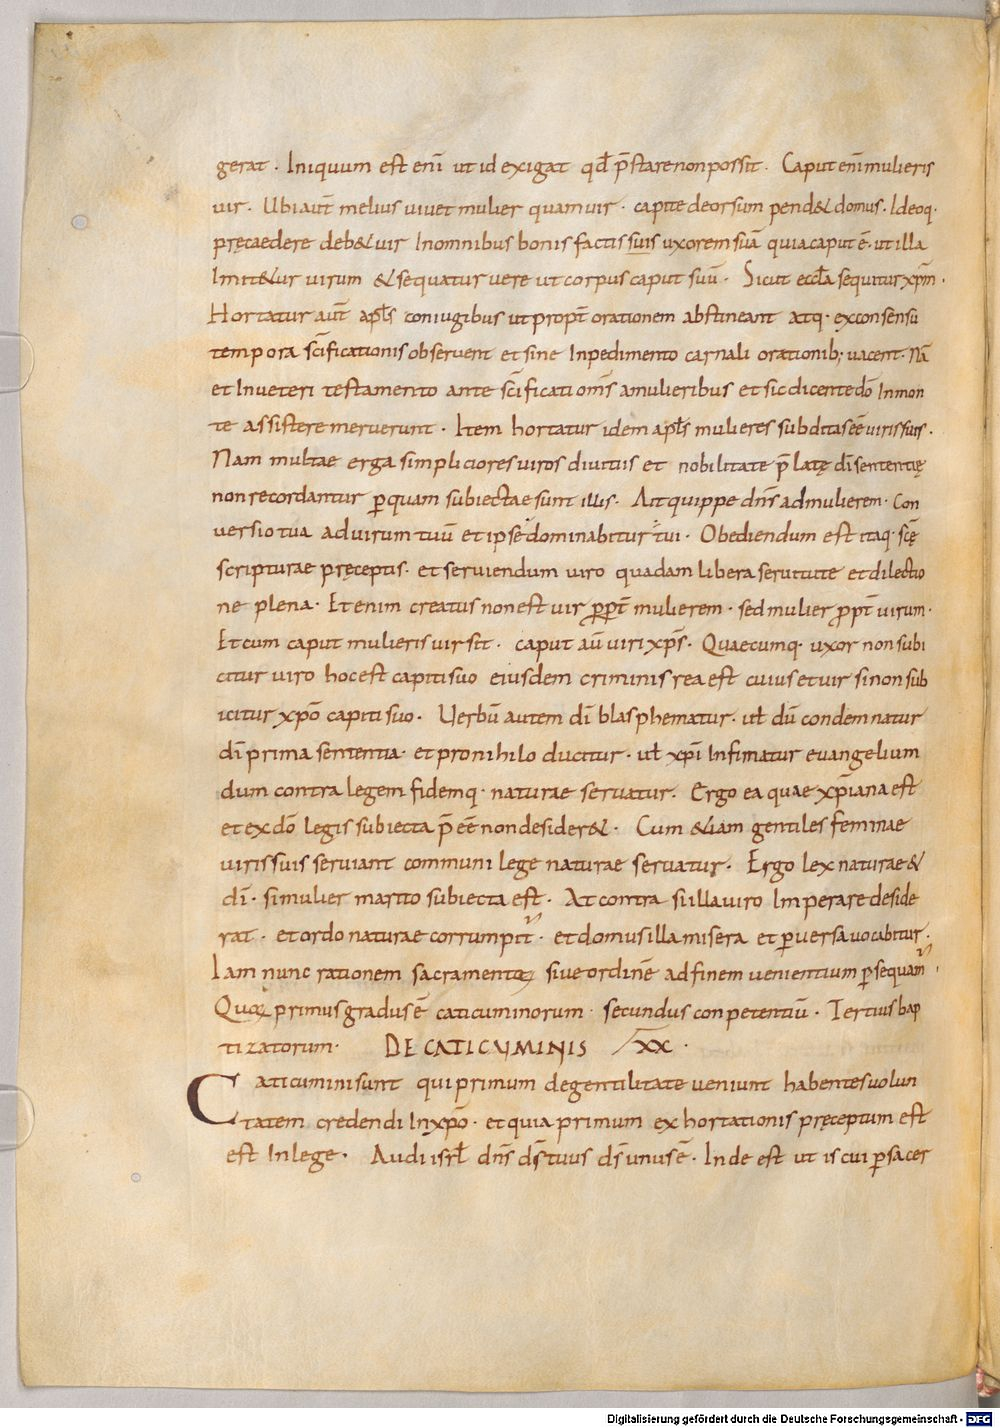 gerat · Iniquum est enī ut id exigat qđ p̄stare non possit · Caput enī mulieris
vir · Ubi aūt melius vivet mulier quam vir · capite deorsum pend& domus · Ideoq·
pręcaedere deb& vir In omnibus bonis factis suis uxorem suā quia caput ē· ut illa
Imit&ur virum & sequatur vere ut corpus caput suū · Sicut eccła sequitur xp̄m ·
Hortatur aūt apłs coniugibus ut propt̄ orationem abstineant atq· ex consensu
tempora sc̄ificationis observent et sine Inpedimento carnali orationib; vacent · Nā
et In veteri testamento ante sc̄ificationis a mulieribus et sic dicente dō In mon
te assistere meruerunt · Item hortatur idem apłs mulieres subditas eē viris suis ·
Nam multae erga simpliciores viros divitiis et nobilitate p̄latę dī sententię
non recordantur ꝑ quam subiectae sunt illis · Ait quippe dn̄s ad mulierem · Con
versio tua ad virum tuū et ipse dominabitur tui · Obediendum est itaq· sc̄ę
scripturae pręceptis · et serviendum viro quadam libera servitute et dilectio
ne plena · Etenim creatus non est vir ꝓpt̄ mulierem · sed mulier ꝓpt̄ virum ·
Et cum caput mulieris vir sit · caput aū viri xp̄s · Quaecumq· uxor non subi
citur viro hoc est capiti suo eiusdem criminis rea est cuius et vir si non sub
icitur xp̄o capiti suo · Verbū autem dī blasphematur · uł dū condemnatur
dī prima sententia · et pro nihilo ducitur · uł xp̄i Infimatur evangelium
dum contra legem fidemq· naturae servatur · Ergo ea quae xp̄iana est
et ex dō legis subiecta p̄eē non desider& · Cum &iam gentiles feminae
viris suis serviant communi lege naturae servatur · Ergo lex naturae &
dī · si mulier marito subiecta est · At contra si illa viro Imperare deside
rat · et ordo naturae corrumpit᷑ · et domus illa misera et ꝑversa vocabitur ·
Iam nunc rationem sacramentoꝝ sive ordinē ad finem venientium ꝑsequam᷑ ·
Quoꝝ primus gradus ē caticuminorum · secundus conpetentiū · Tertius bap
tizatorum · DE CATICUMINIS XX ·
Caticumini sunt qui primum de gentilitate veniunt habentes volun
tatem credendi In xp̄o · et quia primum exhortationis pręceptum est
est In lege · Audi isrł dn̄s ds̄ tuus ds̄ unus ē · Inde est ut is cui ꝑ sacer
Digitalisierung gefördert durch die Deutsche Forschungsgemeinschaft - DFG